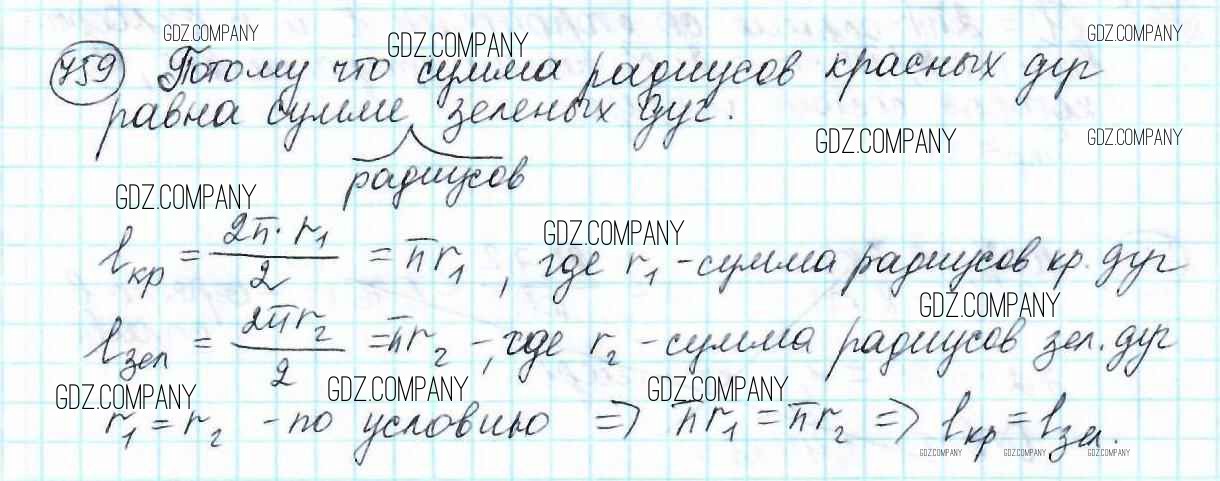 GDZ.COMPANY GDZ.COMPANY GDZ.COMPANY
759 Потому что сумма радиусов красных дуг
равна сумме зеленых дуг.
GDZ.COMPANY GDZ.COMPANY
радиусов
GDZ.COMPANY
GDZ.COMPANY
l кр = 2π · r₁ / 2 = πr₁, где r₁ - сумма радиусов кр. дуг
GDZ.COMPANY
l зел = 2πr₂ / 2 = πr₂ -, где r₂ - сумма радиусов зел. дуг
GDZ.COMPANY GDZ.COMPANY GDZ.COMPANY
r₁ = r₂ - по условию => πr₁ = πr₂ => l кр = l зел.
GDZ.COMPANY GDZ.COMPANY GDZ.COMPANY